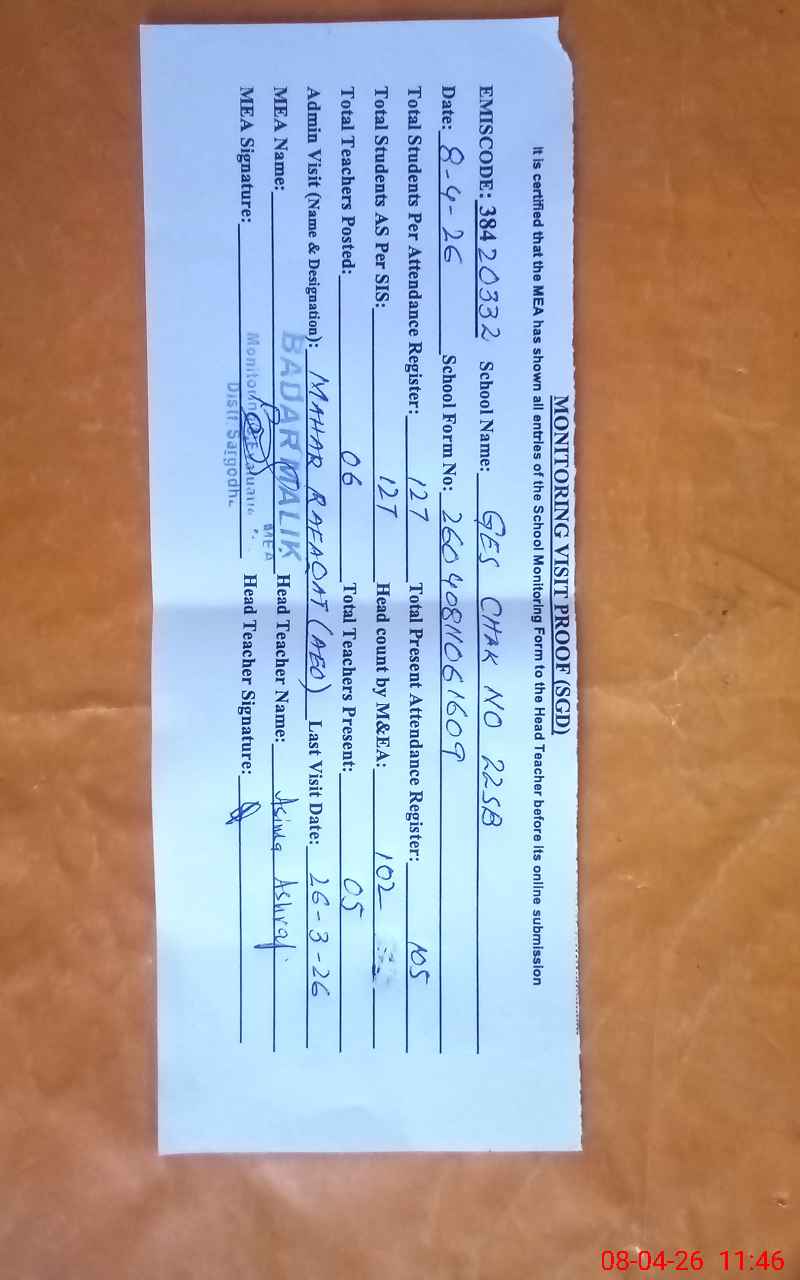 MONITORING VISIT PROOF (SGD)
It is certified that the MEA has shown all entries of the School Monitoring Form to the Head Teacher before its online submission
EMISCODE: 38420332 School Name: GES CHAK NO 22SB
Date: 8-4-26 School Form No: 2604081106 1609
Total Students Per Attendance Register: 127 Total Present Attendance Register: 105
Total Students AS Per SIS: 127 Head count by M&EA: 102
Total Teachers Posted: 06 Total Teachers Present: 05
Admin Visit (Name & Designation): MAHAR RAFAQAT (AEO) Last Visit Date: 26-3-26
MEA Name: BADAR MALIK MEA Head Teacher Name: Asima Ashraf
MEA Signature: Monitoring Distt. Sargodha Head Teacher Signature:
08-04-26 11:46